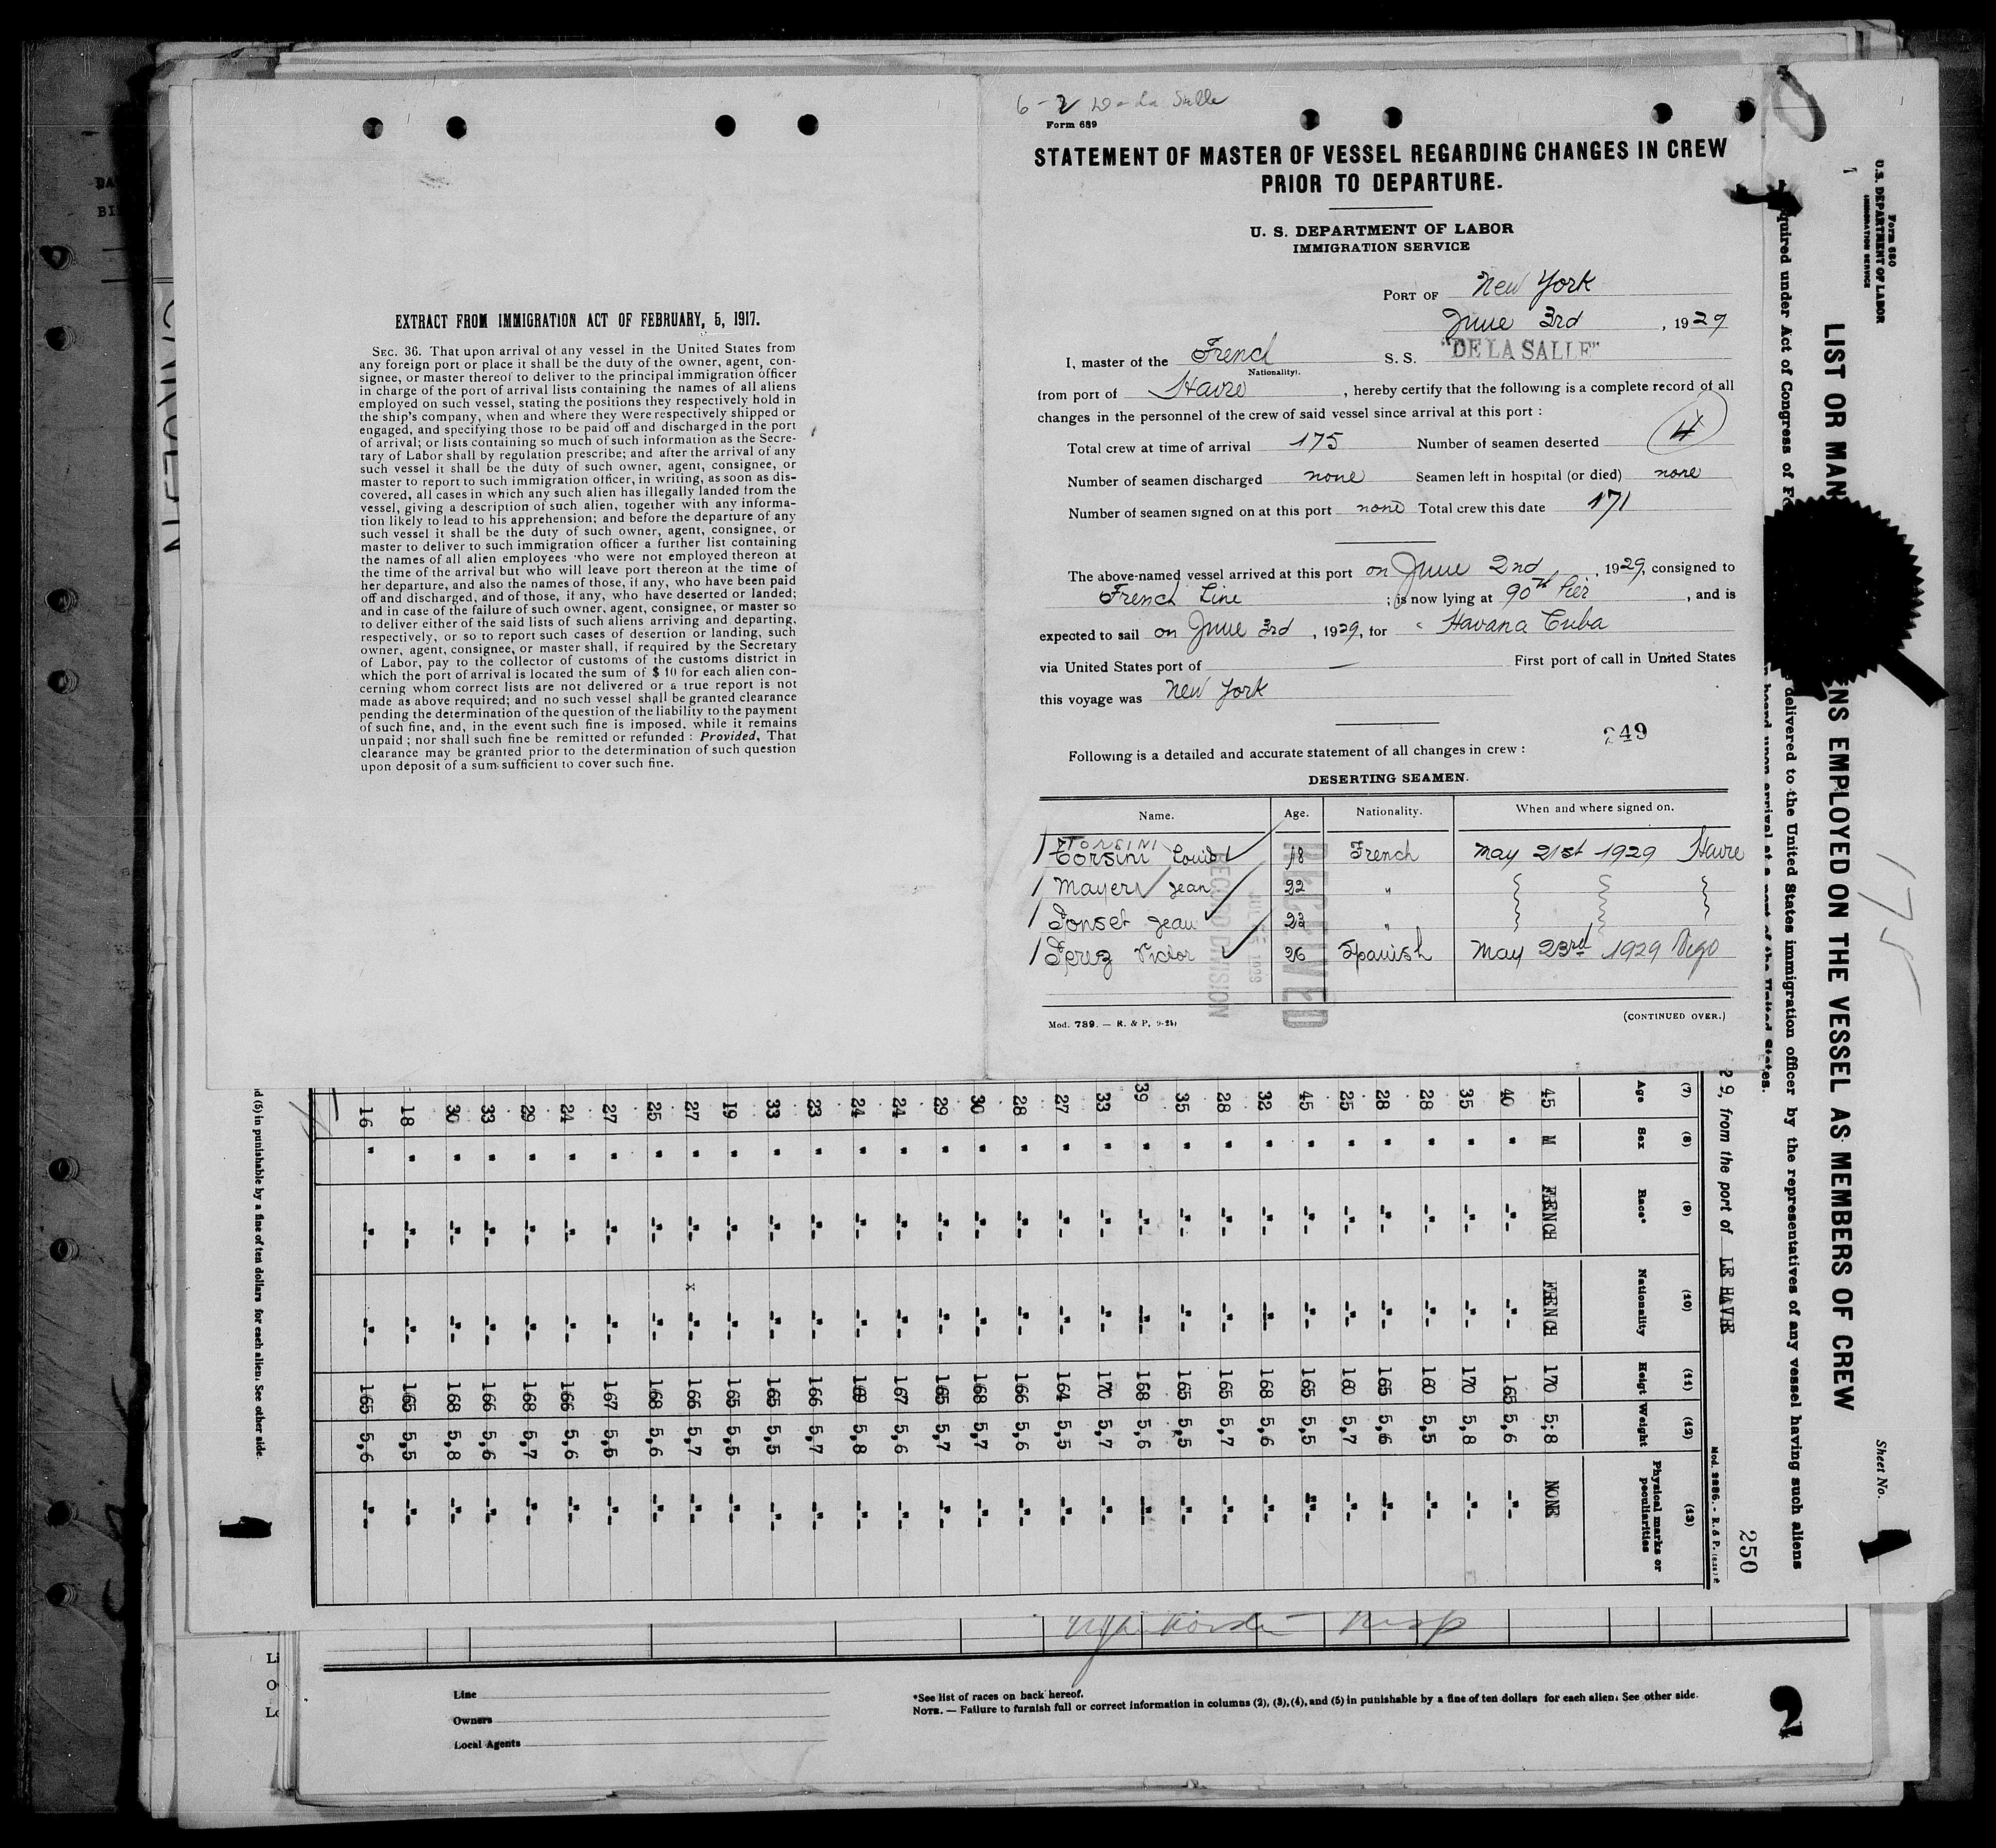 EXTRACT FROM IMMIGRATION ACT OF FEBRUARY, 5, 1917.
SEC. 36. That upon arrival of any vessel in the United States from
any foreign port or place it shall be the duty of the owner, agent, con-
signee, or master thereof to deliver to the principal immigration officer
in charge of the port of arrival lists containing the names of all aliens
employed on such vessel, stating the positions they respectively hold in
the ship's company, when and where they were respectively shipped or
engaged, and specifying those to be paid off and discharged in the port
of arrival; or lists containing so much of such information as the Secre-
tary of Labor shall by regulation prescribe; and after the arrival of any
such vessel it shall be the duty of such owner, agent, consignee, or
master to report to such immigration officer, in writing, as soon as dis-
covered, all cases in which any such alien has illegally landed from the
vessel, giving a description of such alien, together with any informa-
tion likely to lead to his apprehension; and before the departure of any
such vessel it shall be the duty of such owner, agent, consignee, or
master to deliver to such immigration officer a further list containing
the names of all alien employees who were not employed thereon at
the time of the arrival but who will leave port thereon at the time of
her departure, and also the names of those, if any, who have been paid
off and discharged, and of those, if any, who have deserted or landed;
and in case of the failure of such owner, agent, consignee, or master so
to deliver either of the said lists of such aliens arriving and departing,
respectively, or so to report such cases of desertion or landing, such
owner, agent, consignee, or master shall, if required by the Secretary
of Labor, pay to the collector of customs of the customs district in
which the port of arrival is located the sum of $ 10 for each alien con-
cerning whom correct lists are not delivered or a true report is not
made as above required; and no such vessel shall be granted clearance
pending the determination of the question of the liability to the payment
of such fine, and, in the event such fine is imposed, while it remains
unpaid; nor shall such fine be remitted or refunded: Provided, That
clearance may be granted prior to the determination of such question
upon deposit of a sum sufficient to cover such fine.
6-2 De La Salle
Form 689
STATEMENT OF MASTER OF VESSEL REGARDING CHANGES IN CREW
PRIOR TO DEPARTURE.
U. S. DEPARTMENT OF LABOR
IMMIGRATION SERVICE
PORT OF New York
June 3rd, 1929
I, master of the French S. S. "DE LA SALLE"
Nationality).
from port of Havre, hereby certify that the following is a complete record of all
changes in the personnel of the crew of said vessel since arrival at this port:
Total crew at time of arrival 175 Number of seamen deserted 4
Number of seamen discharged none Seamen left in hospital (or died) none
Number of seamen signed on at this port none Total crew this date 171
The above-named vessel arrived at this port on June 2nd, 1929, consigned to
French Line; is now lying at 90th Pier, and is
expected to sail on June 3rd, 1929, for Havana Cuba
via United States port of — First port of call in United States
this voyage was New York
249
Following is a detailed and accurate statement of all changes in crew:
DESERTING SEAMEN.
Name. Age. Nationality. When and where signed on.
TORSINI
Torsini Louis 18 French May 21st 1929 Havre
Mayer Jean 22 "
Ponset Jean 23 "
Perez Victor 26 Spanish May 23rd 1929 Vigo
RECEIVED
RECORD DIVISION
Mod. 789. — R. & P, 9-24)
(CONTINUED OVER.)
Form 680
U.S. DEPARTMENT OF LABOR
IMMIGRATION SERVICE
LIST OR MAN
ENS EMPLOYED ON THE VESSEL AS MEMBERS OF CREW
Sheet No. 1
quired under Act of Congress of
delivered to the United States immigration officer by the representatives of any vessel having such aliens
board upon arrival at a port of the United States.
175
29, from the port of LE HAVRE
250
Mod. 2886. - R. & P.
(7) (8) (9) (10) (11) (12) (13)
Age Sex Race* Nationality Heigt Weight Physical marks or peculiarities
45 M FRENCH FRENCH 170 5;8 NONE
40 " -"- -"- 165 5,6 -"-
35 " -"- -"- 170 5,8 -"-
28 " -"- -"- 160 5,5 -"-
28 " -"- -"- 165 5,6 -"-
25 " -"- -"- 160 5,7 -"-
45 " -"- -"- 165 5,5 -"-
32 " -"- -"- 168 5,6 -"-
28 " -"- -"- 165 5,7 -"-
35 " -"- -"- 165 5,5 -"-
39 " -"- -"- 168 5,6 -"-
33 " -"- -"- 170 5,7 -"-
27 " -"- -"- 164 5,5 -"-
28 " -"- -"- 166 5,6 -"-
30 " -"- -"- 168 5,7 -"-
29 " -"- -"- 165 5,7 -"-
24 " -"- -"- 167 5,6 -"-
24 " -"- -"- 169 5,8 -"-
23 " -"- -"- 166 5,7 -"-
33 " -"- -"- 165 5,5 -"-
19 " -"- -"- 165 5,5 -"-
27 " -"- x -"- 166 5,7 -"-
25 " -"- -"- 168 5,6 -"-
27 " -"- -"- 167 5,5 -"-
24 " -"- -"- 166 5,6 -"-
29 " -"- -"- 168 5,7 -"-
33 " -"- -"- 166 5,6 -"-
30 " -"- -"- 168 5,8 -"-
18 " -"- -"- 165 5,5 -"-
16 " -"- -"- 165 5,6 -"-
d (5) in punishable by a fine of ten dollars for each alien. See other side.
Line
Owners
Local Agents
*See list of races on back hereof.
NOTE. — Failure to furnish full or correct information in columns (2), (3), (4), and (5) in punishable by a fine of ten dollars for each alien. See other side.
2